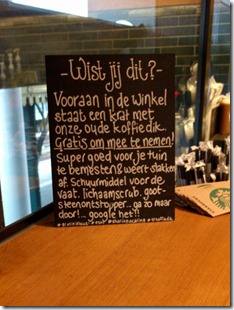 -Wist jij dit?-
Vooraan in de winkel
staat een krat met
onze oude koffiedik..
Gratis om mee te nemen!
Super goed voor je tuin
te bemesten & weert slakken
af. Schuurmiddel voor de
vaat. lichaamscrub. goot-
steenontstopper.. ga zo maar
door!... google het!!